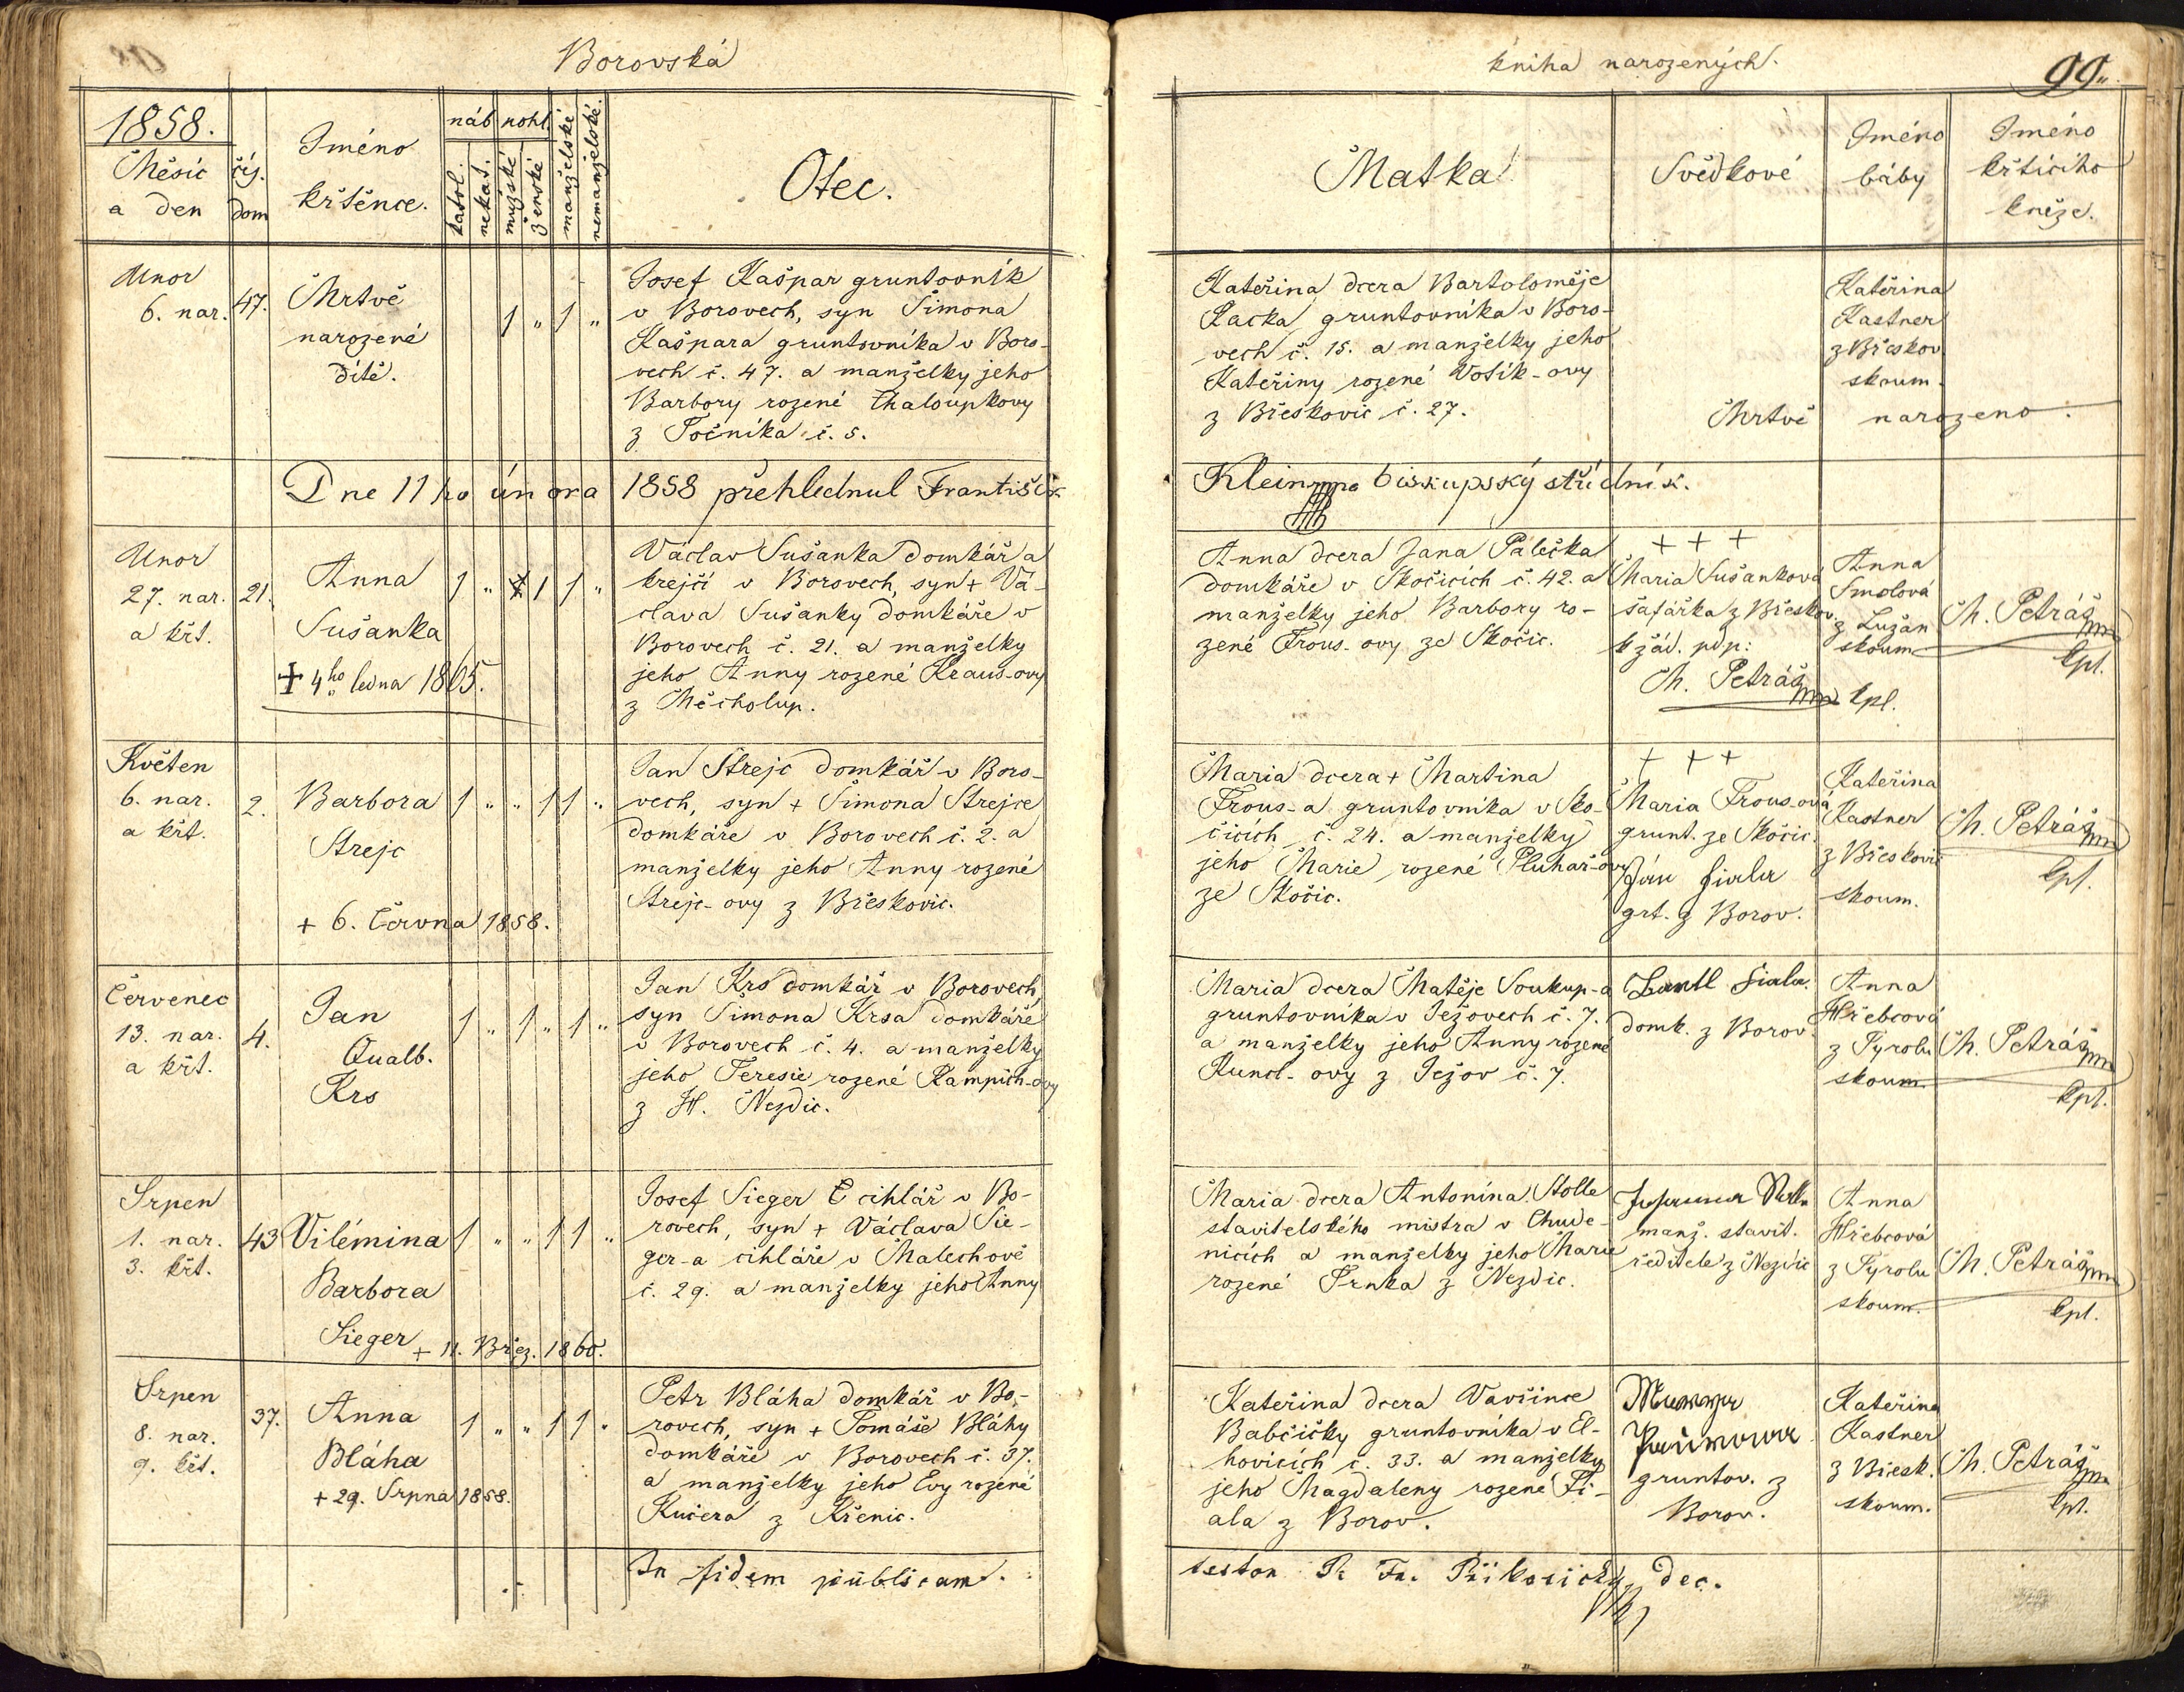 Borovská
1858.
Měsíc
a den
čís.
dom
Jméno
křtěnce.
náb
pohl.
katol.
nekat.
mužské
ženské
manželské
nemanželské.
Otec.
Unor
6. nar.
47.
Mrtvě
narozené
dítě.
1 „ 1 „
Josef Kašpar gruntovník
v Borovech, syn Šimona
Kašpara gruntovníka v Boro-
vech č. 47. a manželky jeho
Barbory rozené Chaloupkovy
z Točníka č. 5.
Dne 11ho února 1858 přehlednul František
Unor
27. nar.
a křt.
21.
Anna
Sušanka
+ 4ho ledna 1865.
1 „ 1 1 „
Václav Sušanka domkář a
krejčí v Borovech, syn + Vá-
clava Sušanky domkáře v
Borovech č. 21. a manželky
jeho Anny rozené Kraus-ovy
z Měcholup.
Květen
6. nar.
a křt.
2.
Barbora
Strejc
+ 6. Června 1858.
1 „ „ 1 1 „
Jan Strejc domkář v Boro-
vech, syn + Šimona Strejce
domkáře v Borovech č. 2. a
manželky jeho Anny rozené
Strejc-ovy z Břeskovic.
Červenec
13. nar.
a křt.
4.
Jan
Qualb.
Krs
1 „ 1 „ 1 „
Jan Krs domkář v Borovech,
syn Šimona Krsa domkáře
v Borovech č. 4. a manželky
jeho Teresie rozené Kampich-ovy
z H. Nezdic.
Srpen
1. nar.
3. křt.
43
Vilémina
Barbora
Sieger
+ 11. Břez. 1860.
1 „ „ 1 1 „
Josef Sieger C cihlář v Bo-
rovech, syn + Václava Sie-
ger-a cihláře v Malechově
č. 29. a manželky jeho Anny
Srpen
8. nar.
9. křt.
37.
Anna
Bláha
+ 29. Srpna 1858.
1 „ „ 1 1 „
Petr Bláha domkář v Bo-
rovech, syn + Tomáše Bláhy
domkáře v Borovech č. 37.
a manželky jeho Evy rozené
Kučera z Křenic.
In fidem publicam.
kniha narozených.
99.
Matka
Svědkové
Jméno
báby
Jméno
křtícího
kněze.
Kateřina dcera Bartoloměje
Racka gruntovníka v Boro-
vech č. 15. a manželky jeho
Kateřiny rozené Votík-ovy
z Břeskovic č. 27.
Kateřina
Kastner
z Břeskov.
skoum.
Mrtvě narozeno.
Klein mp biskupský střídník.
Anna dcera Jana Palečka
domkáře v Skočicích č. 42. a
manželky jeho Barbory ro-
zené Frous-ovy ze Skočic.
+ + +
Maria Sušanková
šafářka z Břeskov.
k žád. pdp:
M. Petráš mp kpl.
Anna
Smolová
z Lužan
skoum
M. Petráš mp
kpl.
Maria dcera + Martina
Frous-a gruntovníka v Sko-
čicích č. 24. a manželky
jeho Marie rozené Pluhař-ovy
ze Skočic.
+ + +
Maria Frous-ová
grunt. ze Skočic.
Ján fiala
grt. z Borov.
Kateřina
Kastner
z Břeskovic
skoum.
M. Petráš mp
kpl.
Maria dcera Matěje Soukup-a
gruntovníka v Ježovech č. 7.
a manželky jeho Anny rozené
Kuncl-ovy z Ježov č. 7.
fiala
domk. z Borov.
Anna
Hřebcová
z Tyrolu
skoum.
M. Petráš mp
kpl.
Maria dcera Antonína Stolle
stavitelského mistra v Chude-
nicích a manželky jeho Marie
rozené Trnka z Nezdic.
manž. stavit.
ředitele z Nezdic
Anna
Hřebcová
z Tyrolu
skoum.
M. Petráš mp
kpl.
Kateřina dcera Vavřince
Babčičky gruntovníka v El-
hovicích č. 33. a manželky
jeho Magdaleny rozené Fi-
ala z Borov.
gruntov. z
Borov.
Kateřina
Kastner
z Břesk.
skoum.
M. Petráš mp
kpl.
testor Fr. dec.